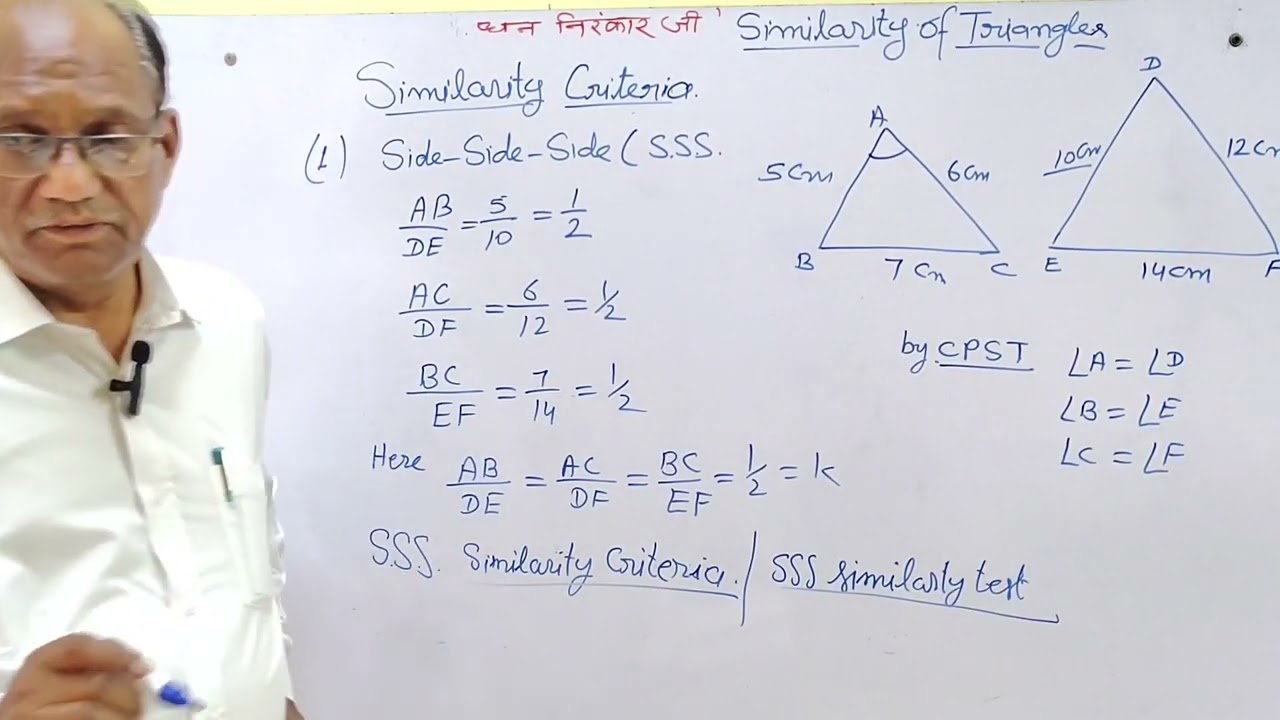 धन निरंकार जी Similarity of Triangles
Similarity Criteria.
(1) Side-Side-Side (S.S.S.
AB/DE = 5/10 = 1/2
AC/DF = 6/12 = 1/2
BC/EF = 7/14 = 1/2
Here AB/DE = AC/DF = BC/EF = 1/2 = k
S.S.S. Similarity Criteria. / SSS similarly test
A
5cm
6cm
B
7cm
C
D
10cm
12c
E
14cm
F
by CPST ∠A = ∠D
∠B = ∠E
∠C = ∠F